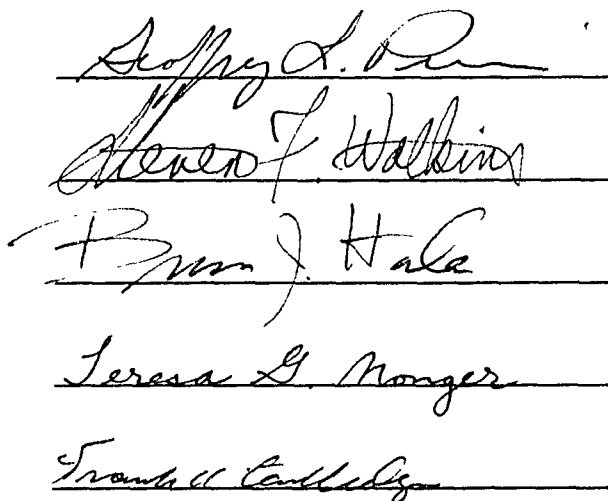 Geoffrey L.
Steven F. Watkins
Brian J. Hale
Teresa G. Monger
Frank